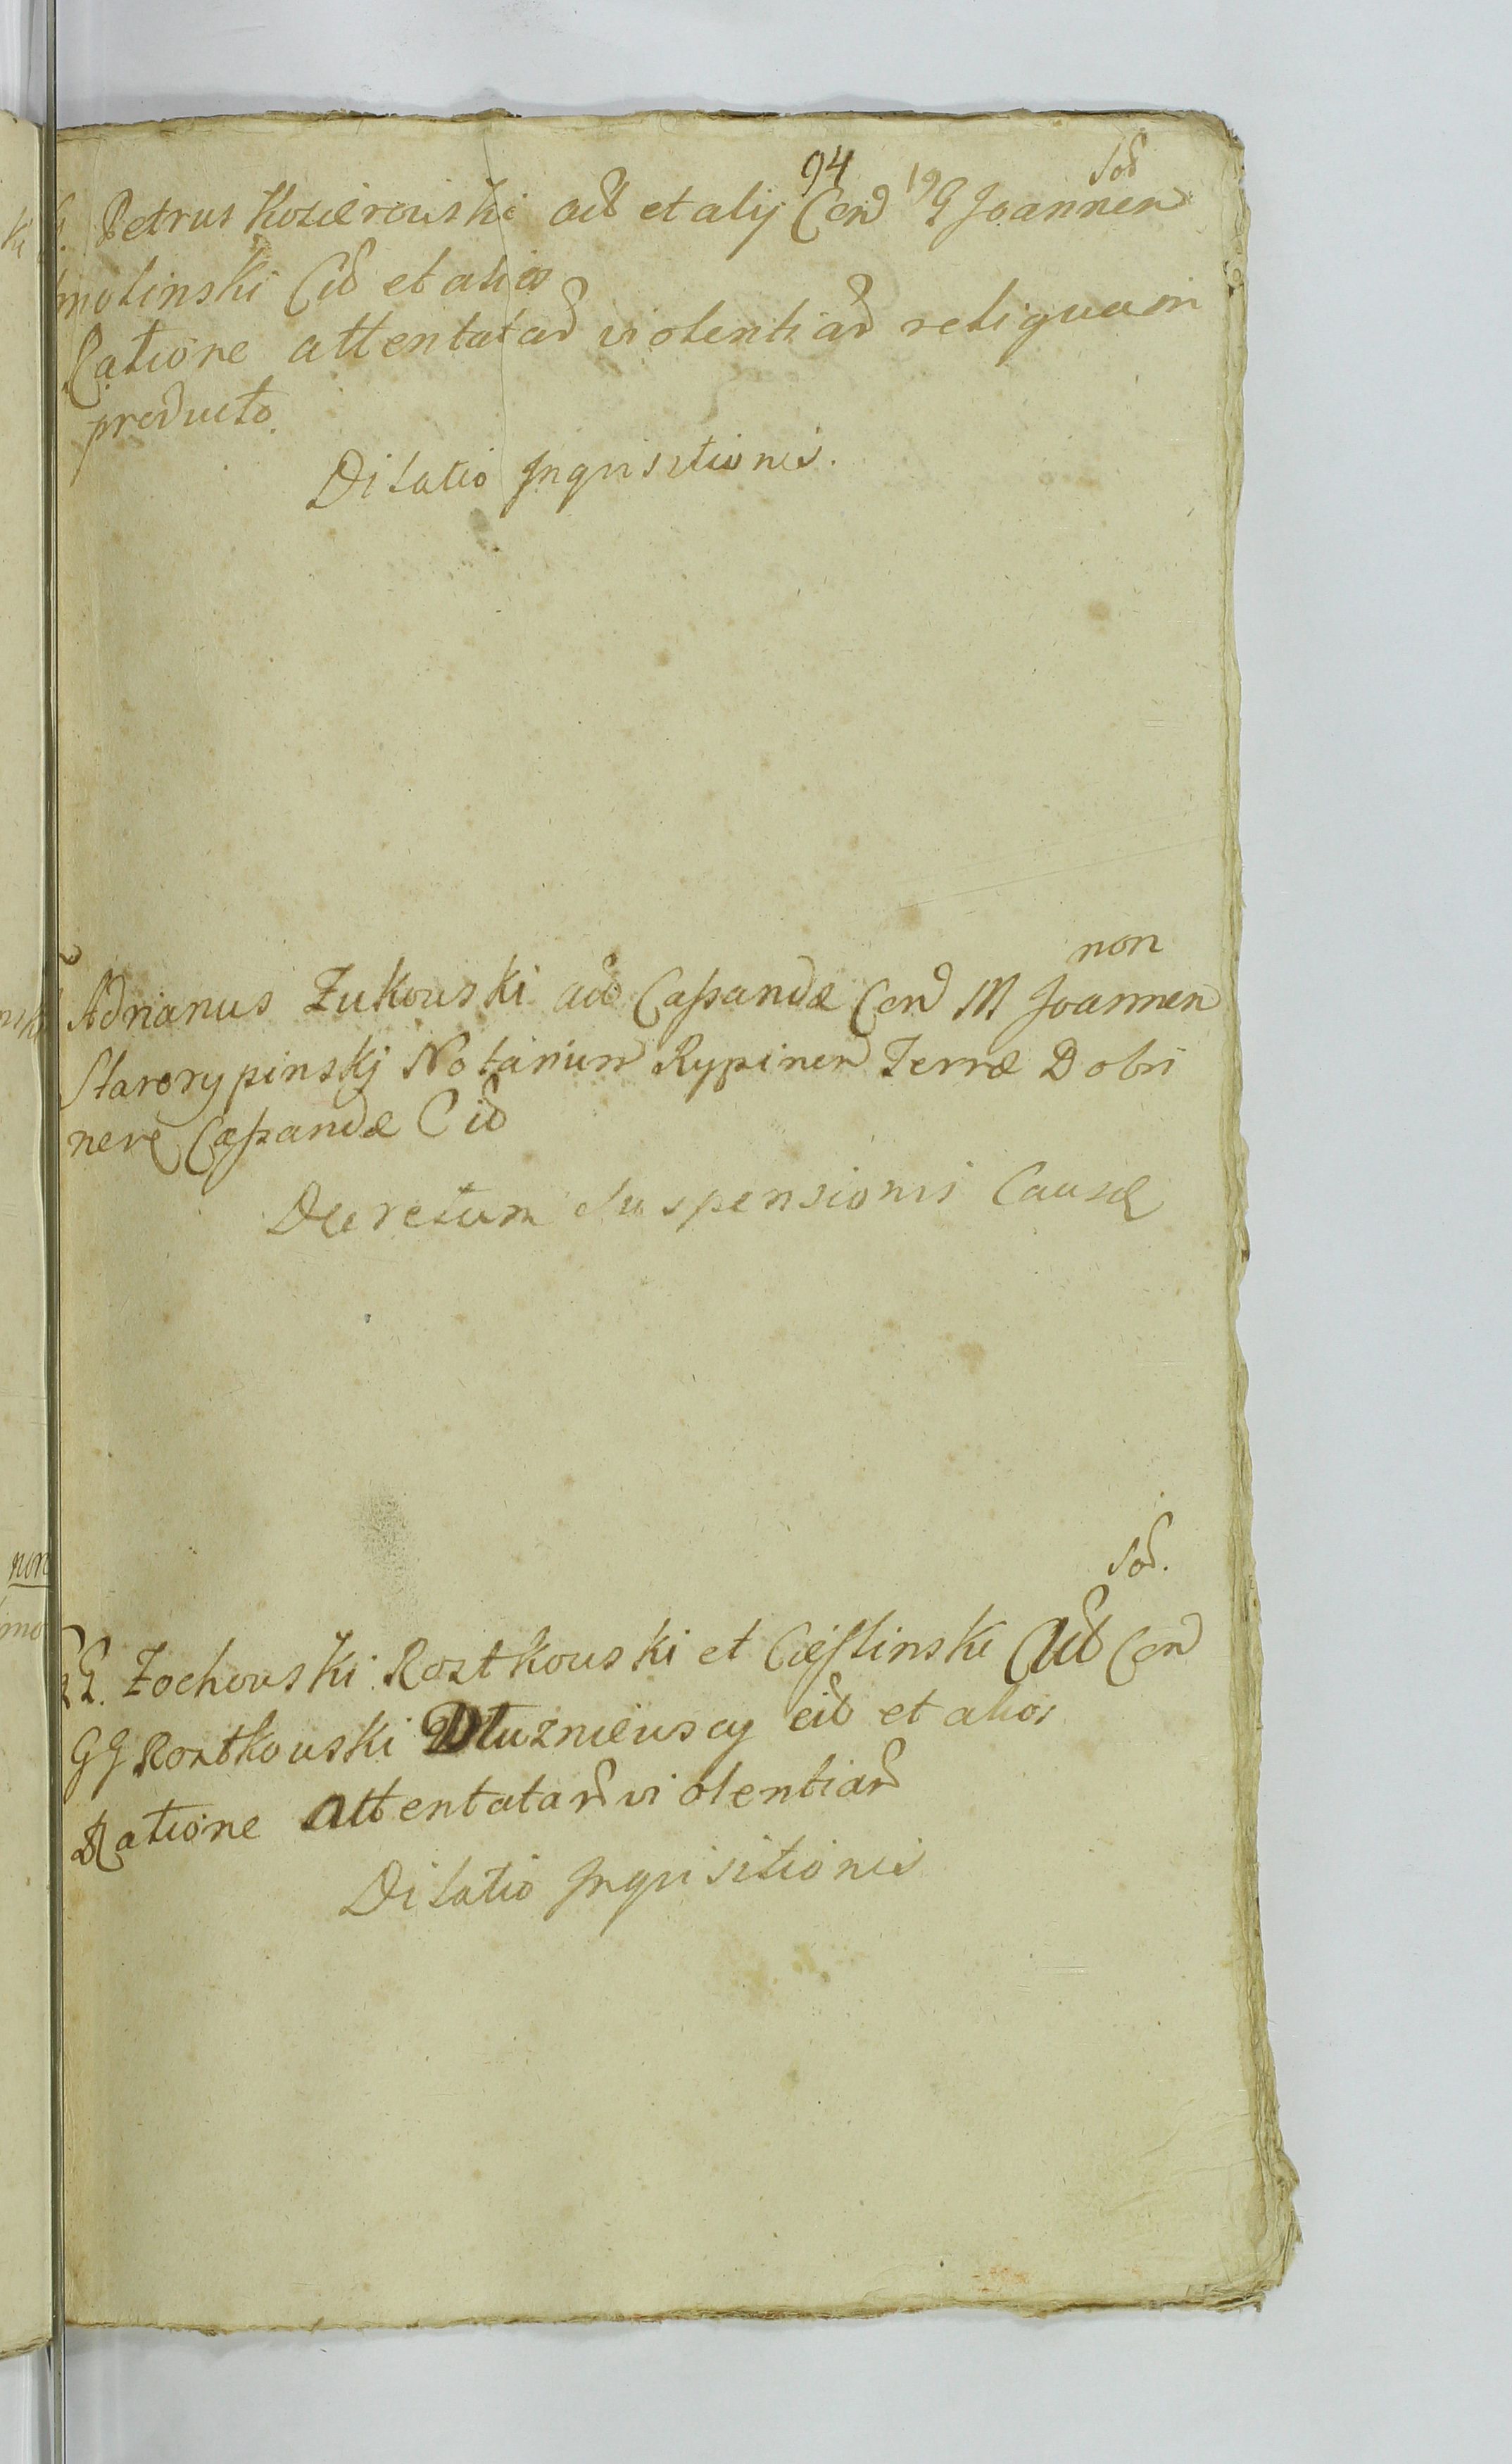 94 19 Sod
G. Petrus Kozierowski act et alij Con G Joannem
Smolinski Cit et alios
Ratione attentatar violentiar reliquam
producto.
Dilatio Inquisitionis.
non
Adrianus Zukowski act Cassandae Con M Joannem
Starorypinskj Notarium Rypinen Terrae Dobri
nen Cassandae Cit
Decretum Suspensionis Causae
Sod.
GG. Zochowski Rostkowski et Cieslinski Act Con
GG Rostkowski Dłuzniewscy cit et alios
Ratione Attentatar violentiar
Dilatio Inquisitionis
non